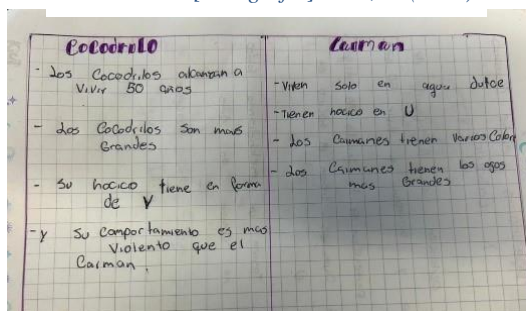 Cocodrilo
- Los Cocodrilos alcanzan a
Vivir 50 años
- Los Cocodrilos son mas
Grandes
- Su hocico tiene en forma
de V
- y su comportamiento es mas
Violento que el
Caiman.
Caiman
- Viven solo en agua dulce
- Tienen hocico en U
- Los Caimanes tienen Varios Color
- Los Caimanes tienen los ojos
mas Grandes